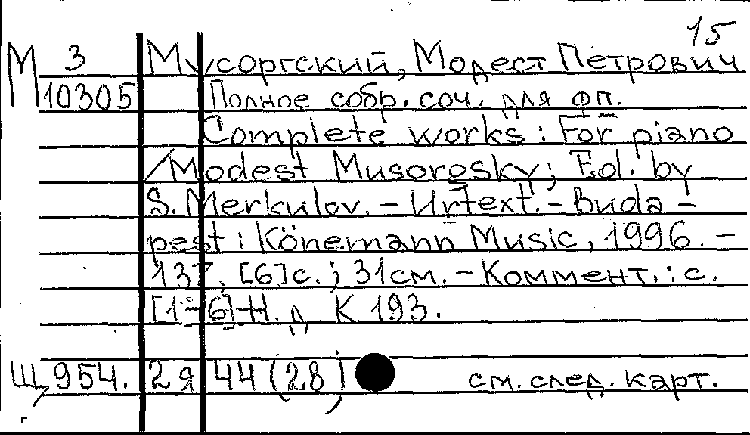 15
М 3 Мусоргский, Модест Петрович
10305 Полное собр. соч. для фп.
Complete works : For piano
/Modest Musorgsky; Ed. by
S. Merkulov. - Urtext. - Buda-
pest : Könemann Music, 1996. -
137, [6]с.; 31см. - Коммент.: с.
[1-6]-Н.д. К 193.
Щ 954. 2я 44 (28) см. след. карт.